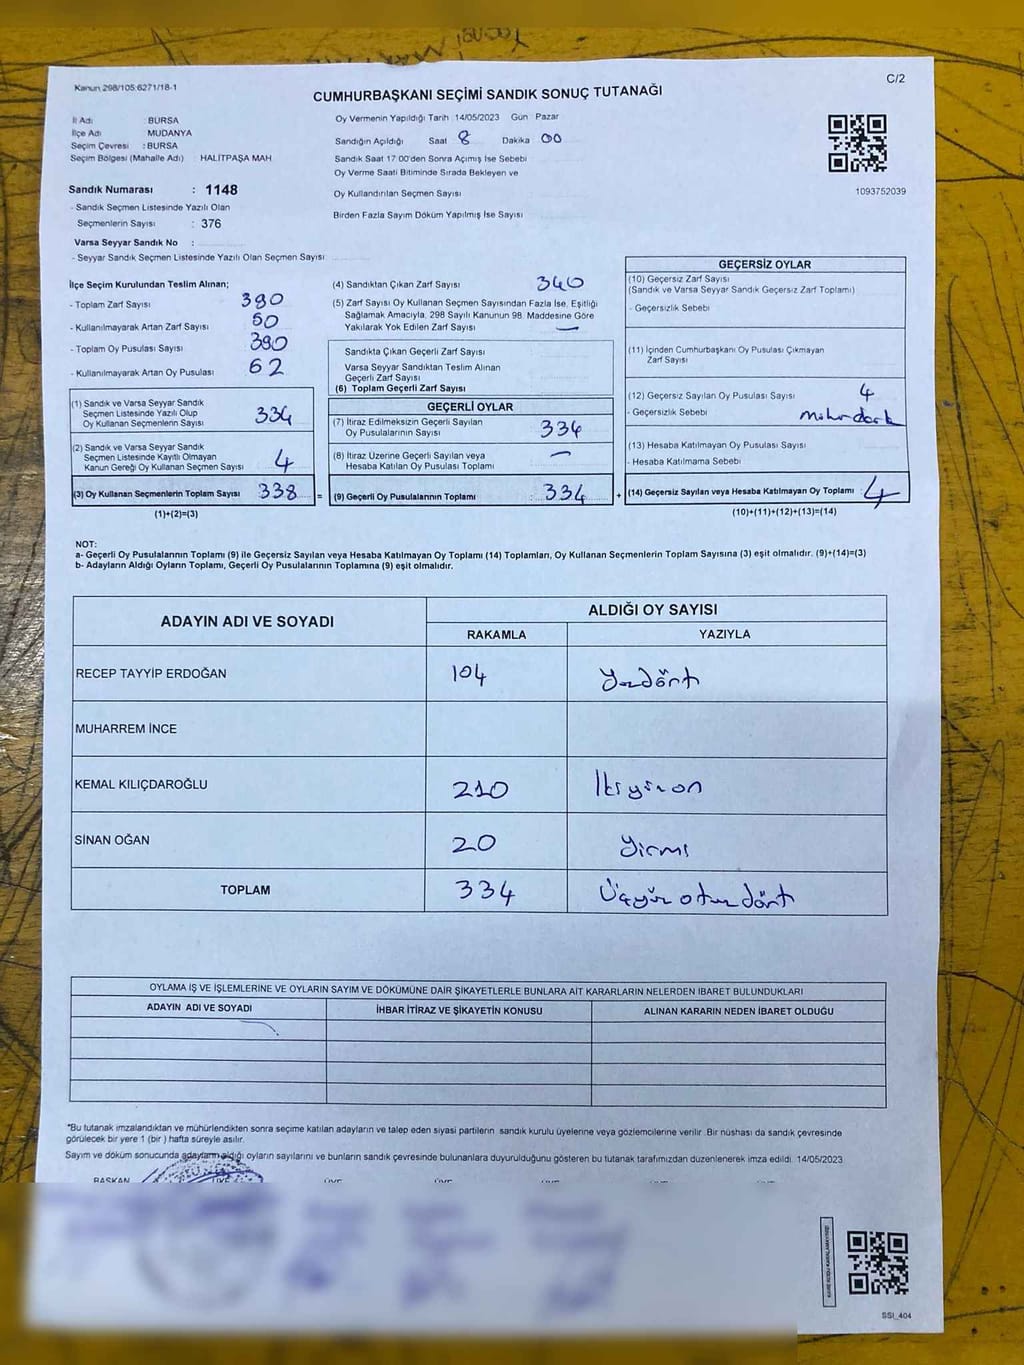 Kanun 298/105:6271/18-1
C/2
CUMHURBAŞKANI SEÇİMİ SANDIK SONUÇ TUTANAĞI
İl Adı : BURSA
İlçe Adı MUDANYA
Seçim Çevresi : BURSA
Seçim Bölgesi (Mahalle Adı) HALİTPAŞA MAH
Sandık Numarası : 1148
- Sandık Seçmen Listesinde Yazılı Olan
Seçmenlerin Sayısı : 376
Varsa Seyyar Sandık No :
- Seyyar Sandık Seçmen Listesinde Yazılı Olan Seçmen Sayısı
Oy Vermenin Yapıldığı Tarih 14/05/2023 Gün Pazar
Sandığın Açıldığı Saat 8 Dakika 00
Sandık Saat 17 00'den Sonra Açımış İse Sebebi
Oy Verme Saati Bitiminde Sırada Bekleyen ve
Oy Kullandırılan Seçmen Sayısı
Birden Fazla Sayım Döküm Yapılmış İse Sayısı
1093752039
İlçe Seçim Kurulundan Teslim Alınan;
- Toplam Zarf Sayısı 390
- Kullanılmayarak Artan Zarf Sayısı 50
- Toplam Oy Pusulası Sayısı 390
- Kullanılmayarak Artan Oy Pusulası 62
(1) Sandık ve Varsa Seyyar Sandık
Seçmen Listesinde Yazılı Olup
Oy Kullanan Seçmenlerin Sayısı 334
(2) Sandık ve Varsa Seyyar Sandık
Seçmen Listesinde Kayıtlı Olmayan
Kanun Gereği Oy Kullanan Seçmen Sayısı 4
(3) Oy Kullanan Seçmenlerin Toplam Sayısı 338 =
(1)+(2)=(3)
(4) Sandıktan Çıkan Zarf Sayısı 340
(5) Zarf Sayısı Oy Kullanan Seçmen Sayısından Fazla İse, Eşitliği
Sağlamak Amacıyla, 298 Sayılı Kanunun 98. Maddesine Göre
Yakılarak Yok Edilen Zarf Sayısı —
Sandıkta Çıkan Geçerli Zarf Sayısı
Varsa Seyyar Sandıktan Teslim Alınan
Geçerli Zarf Sayısı
(6) Toplam Geçerli Zarf Sayısı
GEÇERLİ OYLAR
(7) İtiraz Edilmeksizin Geçerli Sayılan
Oy Pusulalarının Sayısı 334
(8) İtiraz Üzerine Geçerli Sayılan veya
Hesaba Katılan Oy Pusulası Toplamı —
(9) Geçerli Oy Pusulalarının Toplamı : 334 +
GEÇERSİZ OYLAR
(10) Geçersiz Zarf Sayısı
(Sandık ve Varsa Seyyar Sandık Geçersiz Zarf Toplamı)
- Geçersizlik Sebebi
(11) İçinden Cumhurbaşkanı Oy Pusulası Çıkmayan
Zarf Sayısı
(12) Geçersiz Sayılan Oy Pusulası Sayısı 4
- Geçersizlik Sebebi
(13) Hesaba Katılmayan Oy Pusulası Sayısı
- Hesaba Katılmama Sebebi
(14) Geçersiz Sayılan veya Hesaba Katılmayan Oy Toplamı 4
(10)+(11)+(12)+(13)=(14)
NOT:
a- Geçerli Oy Pusulalarının Toplamı (9) ile Geçersiz Sayılan veya Hesaba Katılmayan Oy Toplamı (14) Toplamları, Oy Kullanan Seçmenlerin Toplam Sayısına (3) eşit olmalıdır. (9)+(14)=(3)
b- Adayların Aldığı Oyların Toplamı, Geçerli Oy Pusulalarının Toplamına (9) eşit olmalıdır.
ADAYIN ADI VE SOYADI
ALDIĞI OY SAYISI
RAKAMLA YAZIYLA
RECEP TAYYİP ERDOĞAN 104 Yüzdört
MUHARREM İNCE
KEMAL KILIÇDAROĞLU 210 İkiyüzon
SİNAN OĞAN 20 Yirmi
TOPLAM 334 Üçyüz otuz dört
OYLAMA İŞ VE İŞLEMLERİNE VE OYLARIN SAYIM VE DÖKÜMÜNE DAİR ŞİKAYETLERLE BUNLARA AİT KARARLARIN NELERDEN İBARET BULUNDUKLARI
ADAYIN ADI VE SOYADI İHBAR İTİRAZ VE ŞİKAYETİN KONUSU ALINAN KARARIN NEDEN İBARET OLDUĞU
*Bu tutanak imzalandıktan ve mühürlendikten sonra seçime katılan adayların ve talep eden siyasi partilerin sandık kurulu üyelerine veya gözlemcilerine verilir. Bir nüshası da sandık çevresinde
görülecek bir yere 1 (bir ) hafta süreyle asılır.
Sayım ve döküm sonucunda adayların aldığı oyların sayılarını ve bunların sandık çevresinde bulunanlara duyurulduğunu gösteren bu tutanak tarafımızdan düzenlenerek imza edildi. 14/05/2023
BAŞKAN ÜYE ÜYE ÜYE ÜYE ÜYE ÜYE
SSI_404